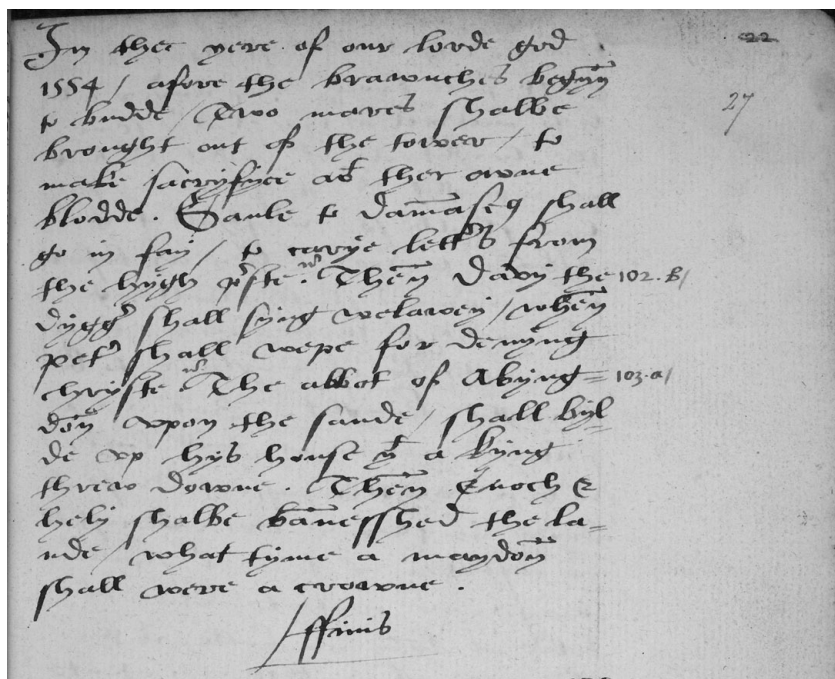 In thee yere of our lorde god
22
1554 / afore the braunches begynn
27
to budde / Two mares shalbe
brought out of the tower / to
make sacryfyce at ther owne
blodde. Saule to Damaseq shall
go in fay / to carye letters from
the hygh prste. Then Davy the 102.b/
dyggr shall syng welawey / when
petr shall wepe for denyng
chryste The abbot of Abyng= 103.a/
don upon the sande / shall byl-
de up hys house yt a kyng
threw downe. Then Enoch &
hely shalbe banesshed the la=
nde / what tyme a maydon
shall were a crowne.
ffinis